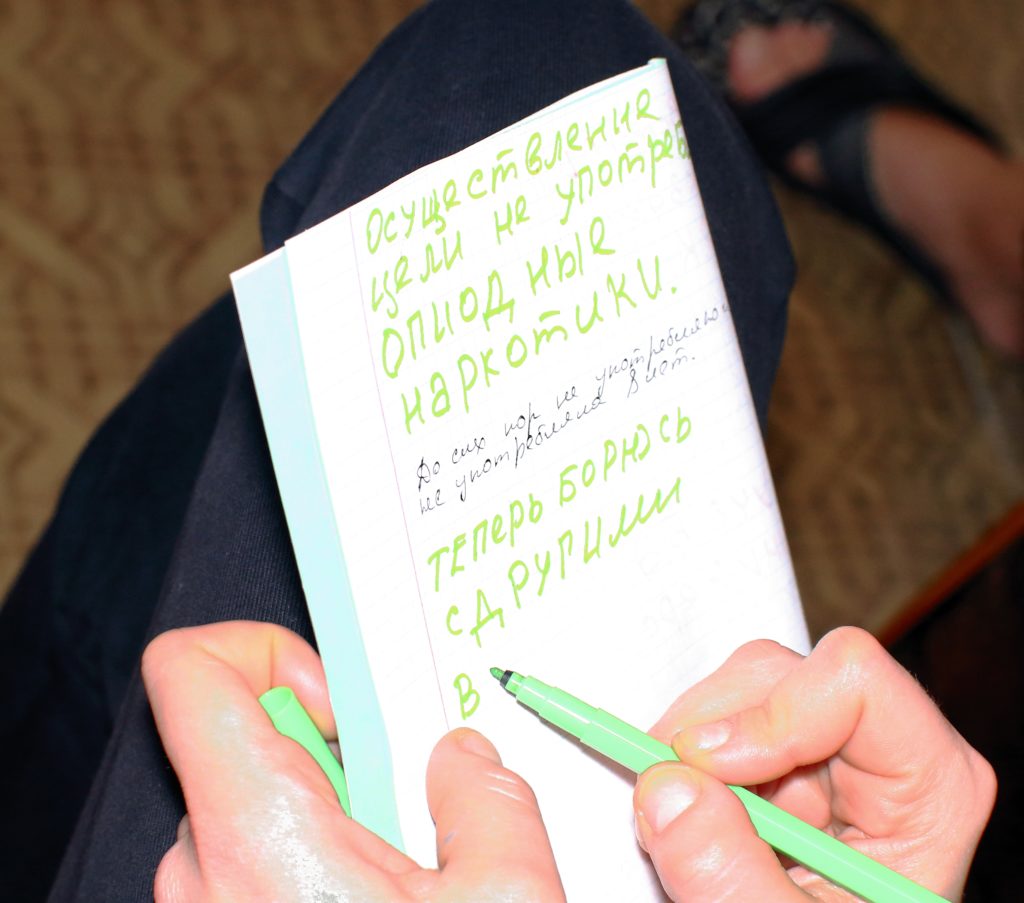 Осуществление
цели не употреб
опиодные
наркотики.
До сих пор не употребляю
не употребляла 8 лет.
Теперь борюсь
с другими
в